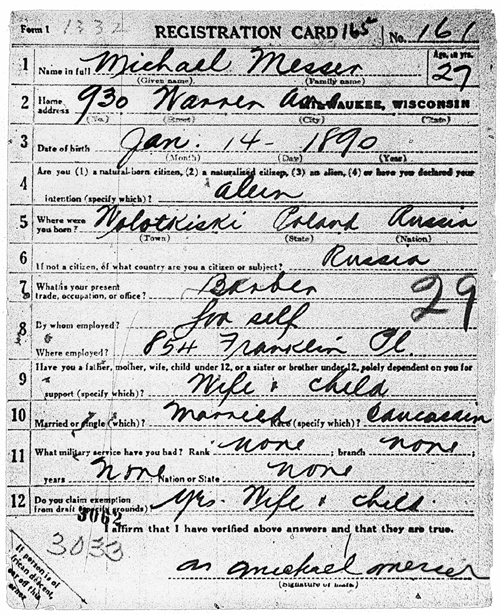 Form 1 1332 REGISTRATION CARD 165 No. 161
1 Name in full Michael Messer Age, in yrs. 27
(Given name) (Family name)
2 Home address 930 Warren Ave MILWAUKEE, WISCONSIN
(No.) (Street) (City) (State)
3 Date of birth Jan. 14 - 1890
(Month) (Day) (Year)
4 Are you (1) a natural-born citizen, (2) a naturalized citizen, (3) an alien, (4) or have you declared your
intention (specify which)? alien
5 Where were you born? Wolotkiski Poland Russia
(Town) (State) (Nation)
6 If not a citizen, of what country are you a citizen or subject? Russia
7 What is your present trade, occupation, or office? Barber 29
8 By whom employed? for self
Where employed? 854 Franklin Pl.
9 Have you a father, mother, wife, child under 12, or a sister or brother under 12, solely dependent on you for
support (specify which)? Wife & child
10 Married or single (which)? Married Race (specify which)? Caucassin
11 What military service have you had? Rank none ; branch none ;
years None Nation or State none
12 Do you claim exemption from draft (specify grounds)? Yes. Wife & child.
3062 I affirm that I have verified above answers and that they are true.
3033
If person is of African descent, cut off this corner
Michael Messer